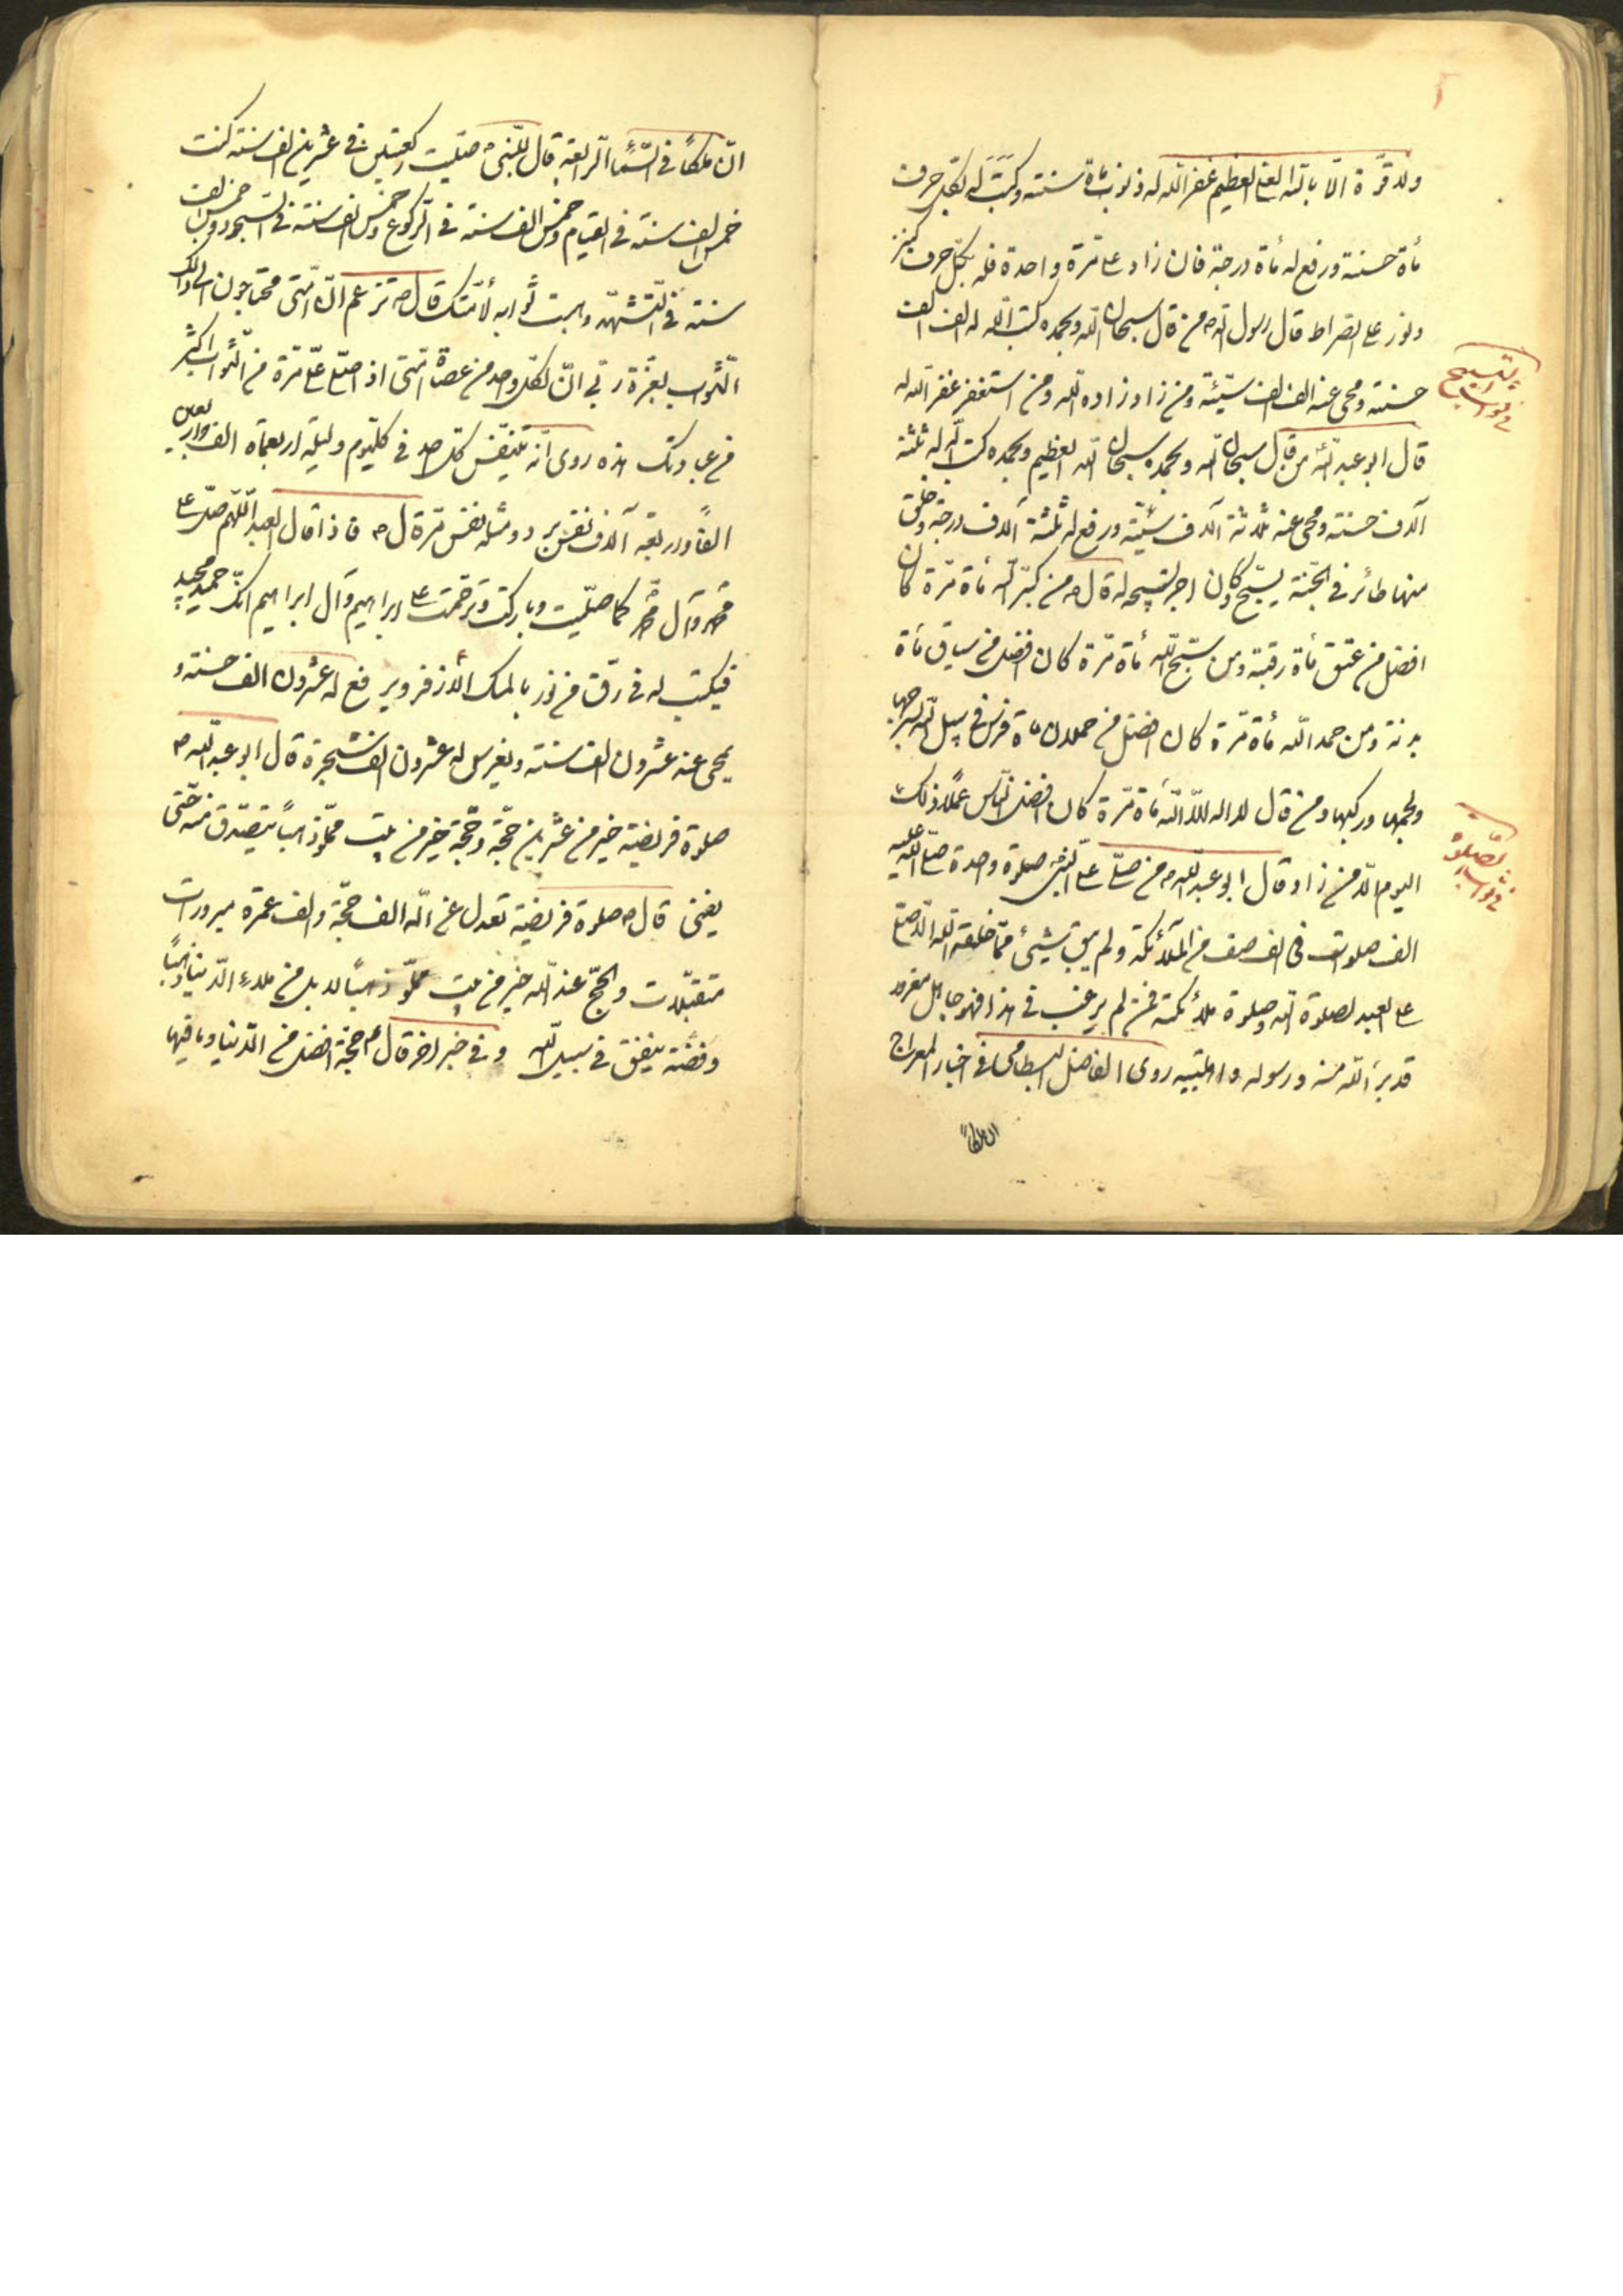 ولا قوّة الّا بالله العلى العظيم غفر الله له ذنوب مأة سنته وكتب له بكلّ حرف
مأة حسنة ورفع له مأة درجة فان زاد على مرّة واحدة فله بكلّ حرف كنز
ونور على الصراط قال رسول الله ص من قال سبحان الله وبحمده كتب الله له الف الف
حسنته ومحى عنه الف الف سيّئة ومن زاد زاده الله ومن استغفر غفر الله له
في ثواب التسبيح
قال ابو عبد الله من قال سبحان الله وبحمده سبحان الله العظيم وبحمده كتب الله له ثلثة
آلاف حسنته ومحى عنه ثلاثة آلاف سيّئة ورفع له ثلثة آلاف درجة وخلق
منها طائر فى الجنّة يسبّح وكان اجر تسبيحه له قال ص من كبّر الله مأة مرّة كان
افضل من عتق مأة رقبة ومن سبّح الله مأة مرّة كان افضل من سياق مأة
بدنة ومن حمد الله مأة مرّة كان افضل من حملان مأة فرس فى سبيل الله بسرجها
ولجمها وركبها ومن قال لا اله الّا الله مأة مرّة كان افضل النّاس عملا ذلك
اليوم الّا من زاد قال ابو عبد الله ص من صلّى على النّبى صلوة واحدة صلّى الله عليه
في ثواب الصّلوة
الف صلوات فى الف صف من الملآئكة ولم يبق شيئ ممّا خلقه الله الّا صلّى
على العبد لصلوة الله وصلوة ملائكته فمن لم يرغب فى هذا فهو جاهل مغرور
قد برئ الله منه ورسوله واهلبيته روى الفاضل البسطامى فى اخبار المعراج
انّ ملكاً
انّ ملكاً فى السّماء الرّابعة قال للنّبى ص صلّيت ركعتين فى عشرين الف سنته كنت
خمس الف سنته فى القيام وخمس الف سنته فى الرّكوع وخمس الف سنته فى السّجود وخمس الف
سنته فى التّشهّد وهبت ثوابه لأمّتك قال ص تزعم انّ امّتى محتاجون الى ذلك
الثّواب بعزّة ربّى انّ لكلّ واحد من عصاة امّتى اذا صلّى علىّ مرّة من الثّواب اكثر
من عبادتك هذه روى انّه يتنفّس كلّ احد فى كلّ يوم وليلة اربعمأة الف واربعين
الفاً واربعة آلاف نفس مرّة قال ص فاذا قال العبد اللّهمّ صلّ على
محمّد وآل محمّد كما صلّيت وباركت وترحّمت على ابراهيم وآل ابراهيم انّك حميد مجيد
فيكتب له فى رقّ من نور بالمسك الأذفر ويرفع له عشرون الف حسنة و
يمحى عنه عشرون الف سنته ويغرس له عشرون الف شجرة قال ابو عبد الله ص
صلوة فريضية خير من عشرين حجّة وحجّة خير من بيت مملوّ ذهباً يتصدّق منه حتّى
يفنى قال ص صلوة فريضية تعدل عند الله الف حجّة والف عمرة مبرورات
متقبّلات والحجّ عند الله خير من بيت مملوّ ذهباً لا بل من ملاء الدّنيا ذهباً
وفضّة ينفق فى سبيل الله وفى خبر اخر قال ص حجّة افضل من الدّنيا وما فيها